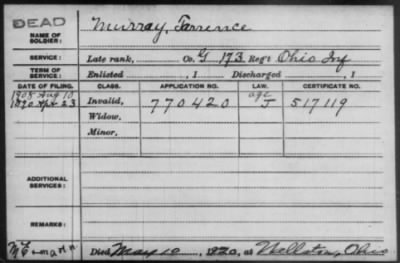 DEAD
NAME OF SOLDIER: Murray, Terrence
SERVICE: Late rank, Co. G 173 Reg't Ohio Inf
TERM OF SERVICE: Enlisted , 1 Discharged , 1
DATE OF FILING. CLASS. APPLICATION NO. LAW. CERTIFICATE NO.
1908 Aug 10 age
1890 Apr 23 Invalid, 770420 J 517119
Widow,
Minor,
ADDITIONAL SERVICES:
REMARKS:
Died May 10, 1920, at Wellston, Ohio